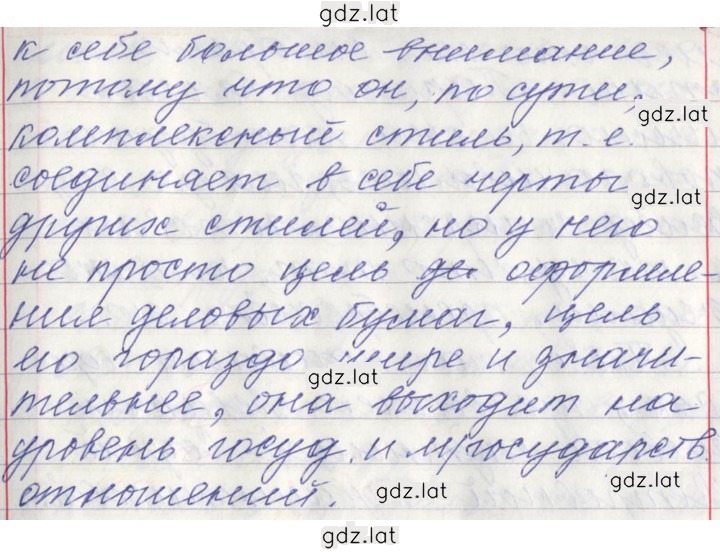 gdz.lat
к себе большое внимание,
потому что он, по сути,
gdz.lat
комплексный стиль, т. е.
соединяет в себе черты
gdz.lat
других стилей, но у него
не просто цель оформле-
ния деловых бумаг, цель
его гораздо шире и значи-
gdz.lat
тельнее, она выходит на
уровень госуд. и м/государств.
отношений.
gdz.lat
gdz.lat
gdz.lat